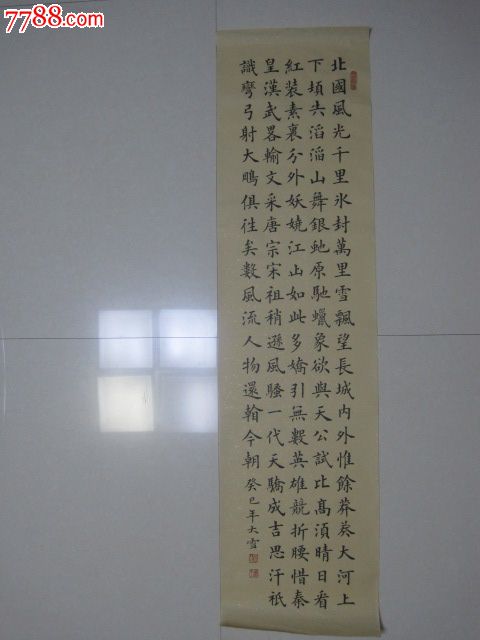 7788.com
北國風光千里氷封萬里雪飄望長城内外惟餘莽莽大河上
下頓失滔滔山舞銀虵原馳蠟象欲與天公試比髙須晴日看
紅装素裹分外妖嬈江山如此多嬌引無數英雄競折腰惜秦
皇漢武畧輸文采唐宗宋祖稍遜風騷一代天驕成吉思汗祇
識彎弓射大鵰俱往矣數風流人物還看今朝癸巳年大雪